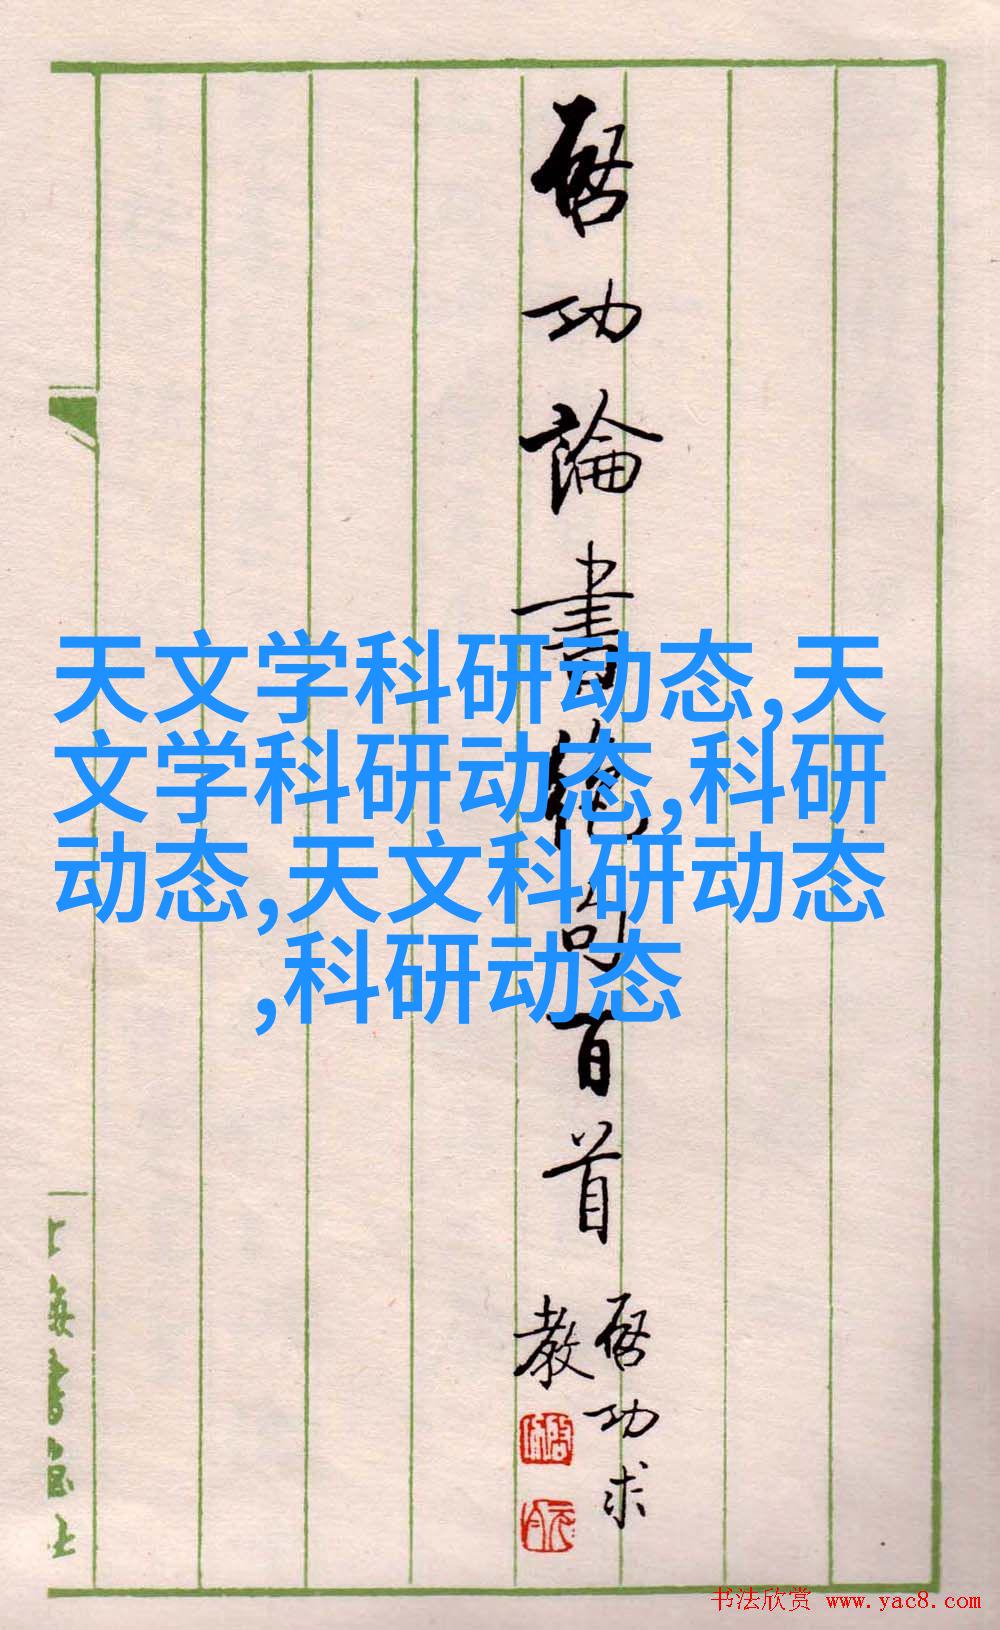 启功論書絶句百首
启功求
教
天文学科研动态,天
文学科研动态,科研
动态,天文科研动态
,科研动态
上海书画社
书法欣赏 www.yac8.com